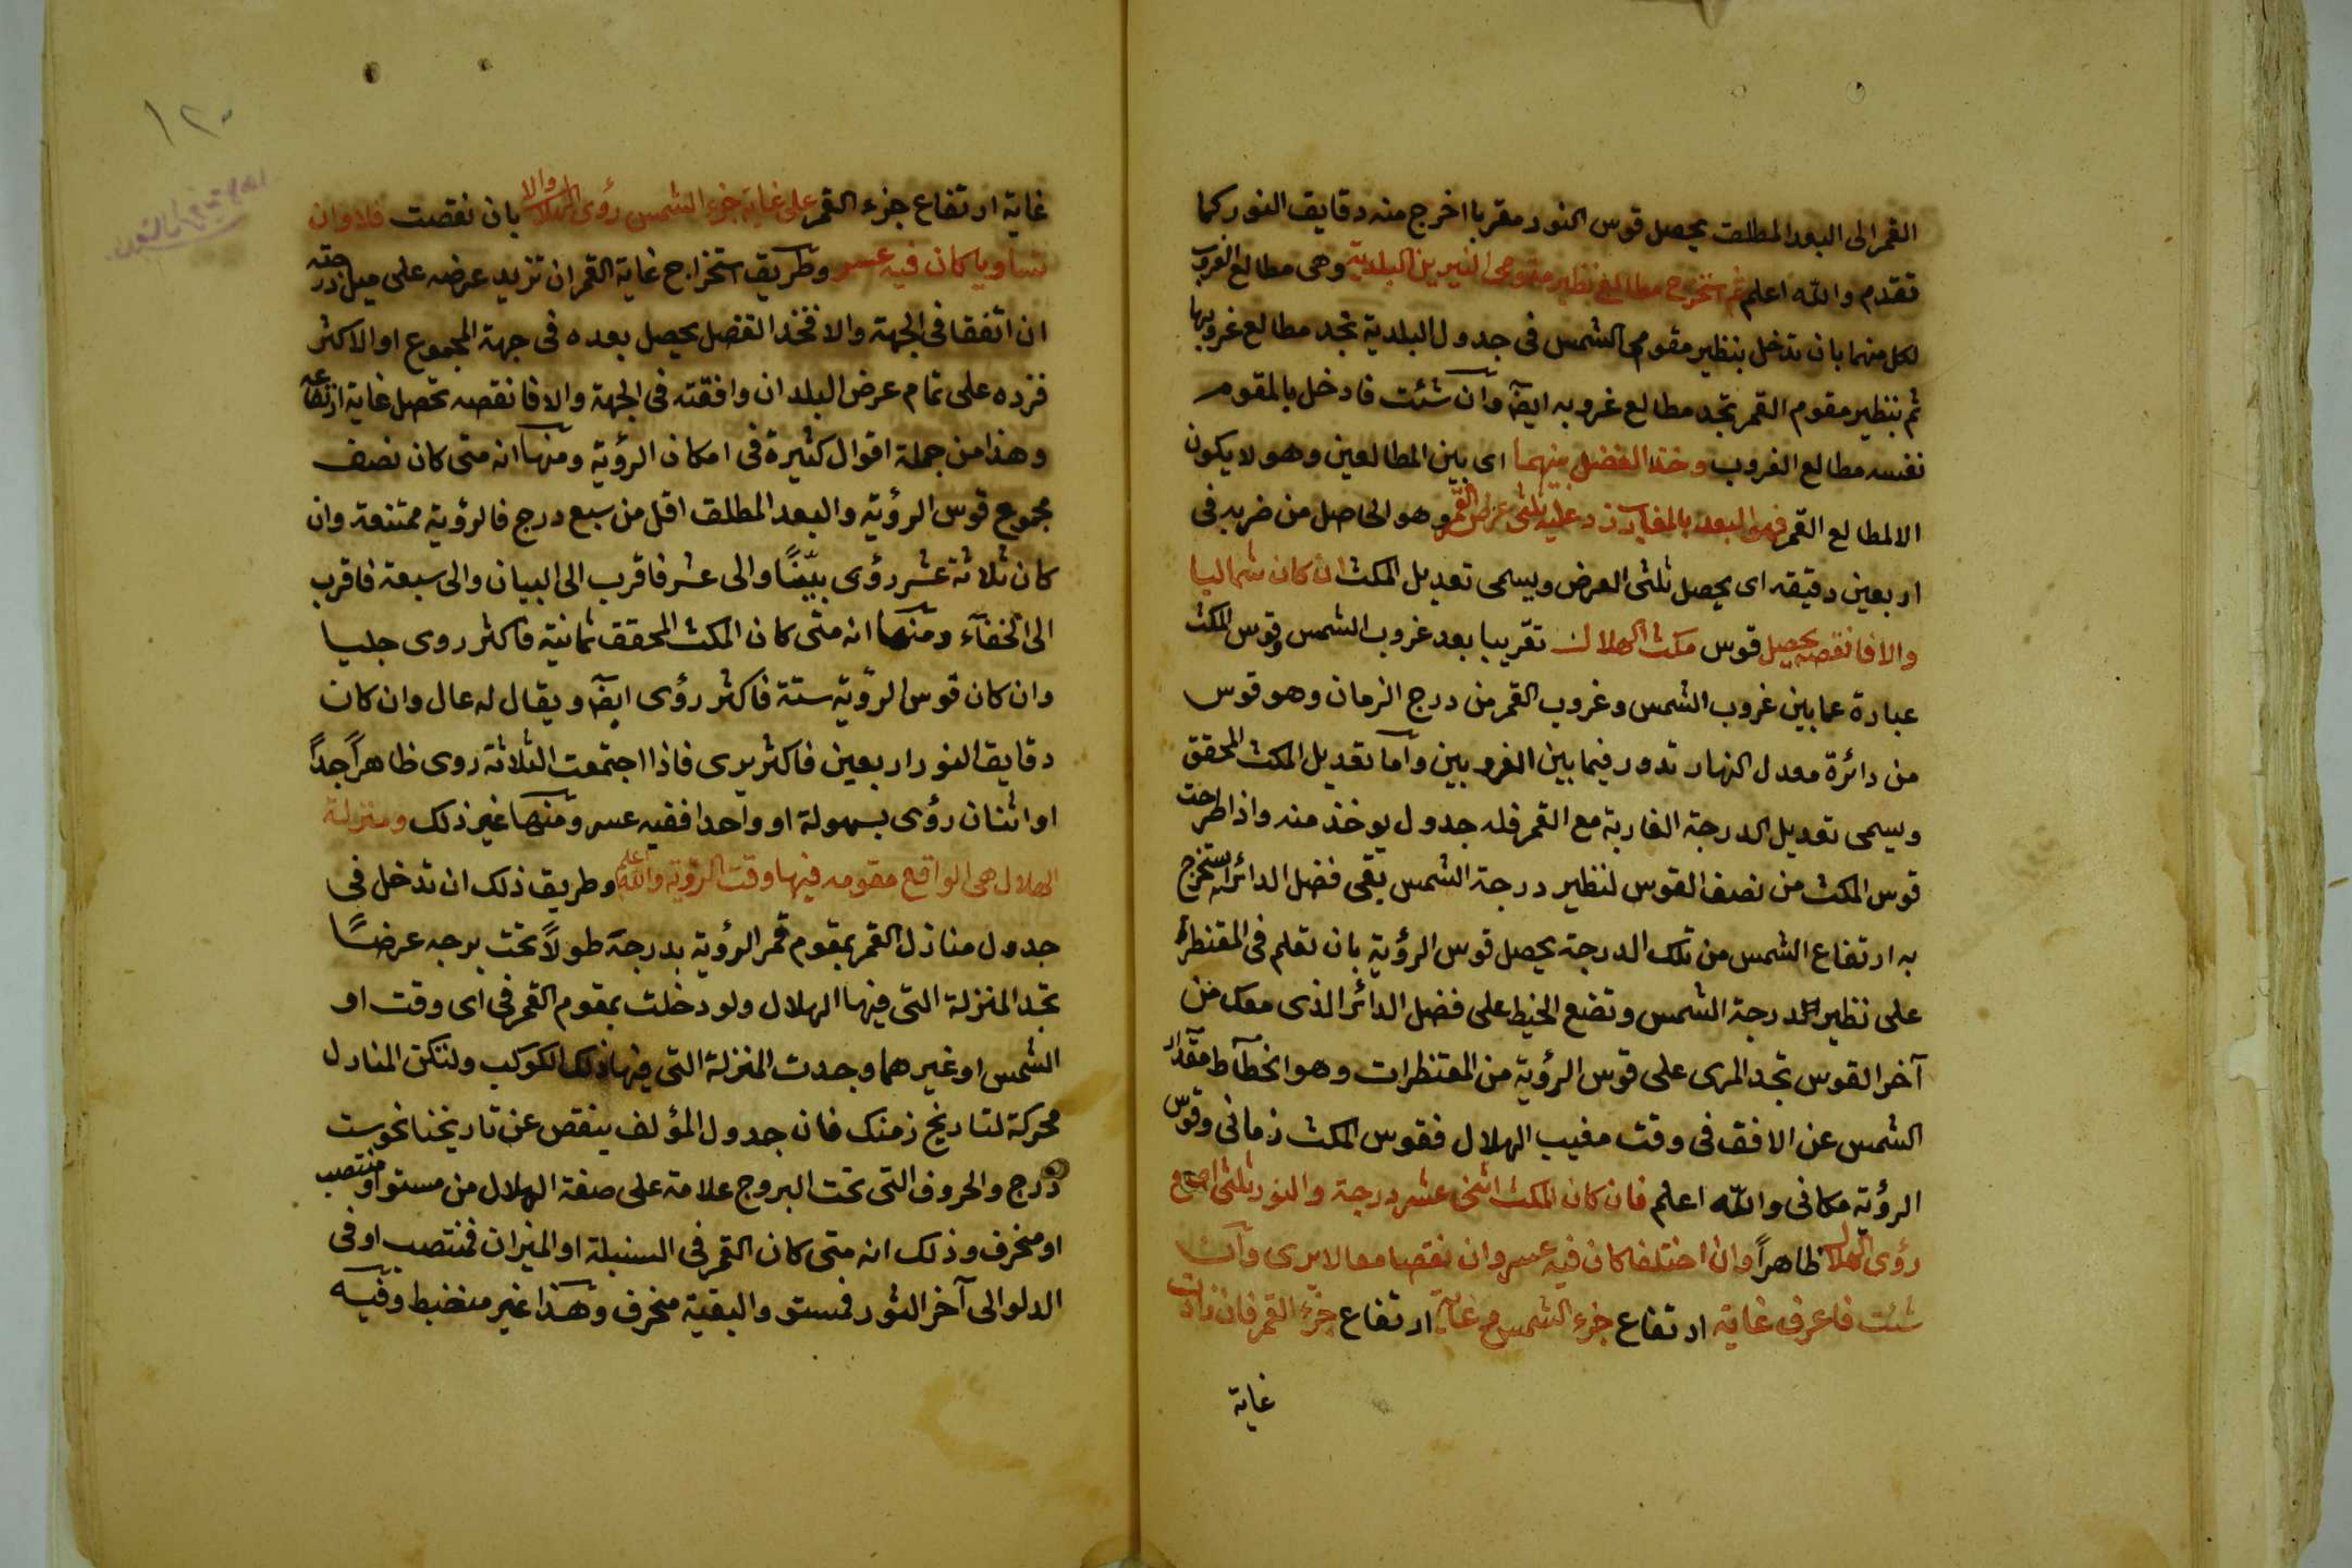 القمر الى البعد المطلق يحصل قوس النور مقربا اخرج منه دقايق النور كما
تقدم والله اعلم ثم استخرج مطالع نظير مقومى النيرين البلدية وهى مطالع الغروب
لكل منهما بان تدخل بنظير مقوم الشمس فى جدول البلدية تجد مطالع غروبها
ثم بنظير مقوم القمر تجد مطالع غروبه ايضا وان شئت فادخل بالمقوم
نفسه مطالع الغروب وخذ الفضل بينهما اى بين المطالعين وهو لا يكون
الا لمطالع القمر فهو البعد بالمغارب زد عليه ثلثى عرض القمر وهو الحاصل من ضربه فى
اربعين دقيقه اى يحصل ثلثى العرض ويسمى تعديل المكث ان كان شماليا
والا فانقصه يحصل قوس مكث الهلال تقريبا بعد غروب الشمس وقوس المكث
عبارة عما بين غروب الشمس وغروب القمر من درج الزمان وهو قوس
من دائرة معدل النهار تدور فيما بين الغروبين واما تعديل المكث المحقق
ويسمى تعديل الدرجة الغاربة مع القمر فله جدول يوخذ منه واذا طرحت
قوس المكث من نصف القوس لنظير درجة الشمس بقى فضل الدائر استخرج
به ارتفاع الشمس من تلك الدرجة يحصل قوس الرؤية بان تعلم فى المقنطرة
على نظير درجة الشمس وتضع الخيط على فضل الدائر الذى معك من
آخر القوس تجد المرى على قوس الرؤية من المقنطرات وهو انحطاط مقدار
الشمس عن الافق فى وقت مغيب الهلال فقوس المكث زمانى وقوس
الرؤية مكانى والله اعلم فان كان المكث اثنى عشر درجة والنور ثلثى اصبع
رؤى الهلال ظاهراً وان اختلفا كان فيه عسر وان نقصا معا لا يرى وان
شئت فاعرف غاية ارتفاع جزء الشمس مع غاية ارتفاع جزء القمر فان زادت
غاية
١٢٠
غاية ارتفاع جزء القمر على غاية جزء الشمس رؤى الهلال والا بان نقصت فلا وان
تساويا كان فيه عسر وطريق استخراج غاية القمر ان تزيد عرضه على ميل درجته
ان اتفقا فى الجهة والا فخذ الفضل يحصل بعده فى جهة المجموع او الاكثر
فزده على تمام عرض البلد ان وافقته فى الجهة والا فانقصه تحصل غاية ارتفاعه
وهذا من جملة اقوال كثيرة فى امكان الرؤية ومنها انه متى كان نصف
مجموع قوس الرؤية والبعد المطلق اقل من سبع درج فالرؤية ممتنعة وان
كان ثلاثة عشر رؤى بيّنًا والى عشر فاقرب الى البيان والى سبعة فاقرب
الى الخفآء ومنها انه متى كان المكث المحقق ثمانية فاكثر روى جليا
وان كان قوس الرؤية ستة فاكثر رؤى ايضا ويقال له عال وان كان
دقايق النور اربعين فاكثر يرى فاذا اجتمعت الثلاثة روى ظاهراً جداً
او اثنان رؤى بسهولة او واحدا ففيه عسر ومنها غير ذلك ومنزلة
الهلال هى الواقع مقومه فيها وقت الرؤية والله اعلم وطريق ذلك ان تدخل فى
جدول منازل القمر بمقوم قمر الرؤية بدرجة طولاً تحت برجه عرضًا
تجد المنزلة التى فيها الهلال ولو دخلت بمقوم القمر فى اى وقت او
الشمس او غيرهما وجدت المنزلة التى فيها ذلك الكوكب ولتكن المنازل
محركة لتاريخ زمنك فان جدول المؤلف ينقص عن تاريخنا نحو ست
درج والحروف التى تحت البروج علامة على صفة الهلال من مستو او منتصب
او منحرف وذلك انه متى كان القمر فى السنبلة او الميزان فمنتصب او فى
الدلو الى آخر الثور فمستو والبقية منحرف وهذا غير منضبط وفيه